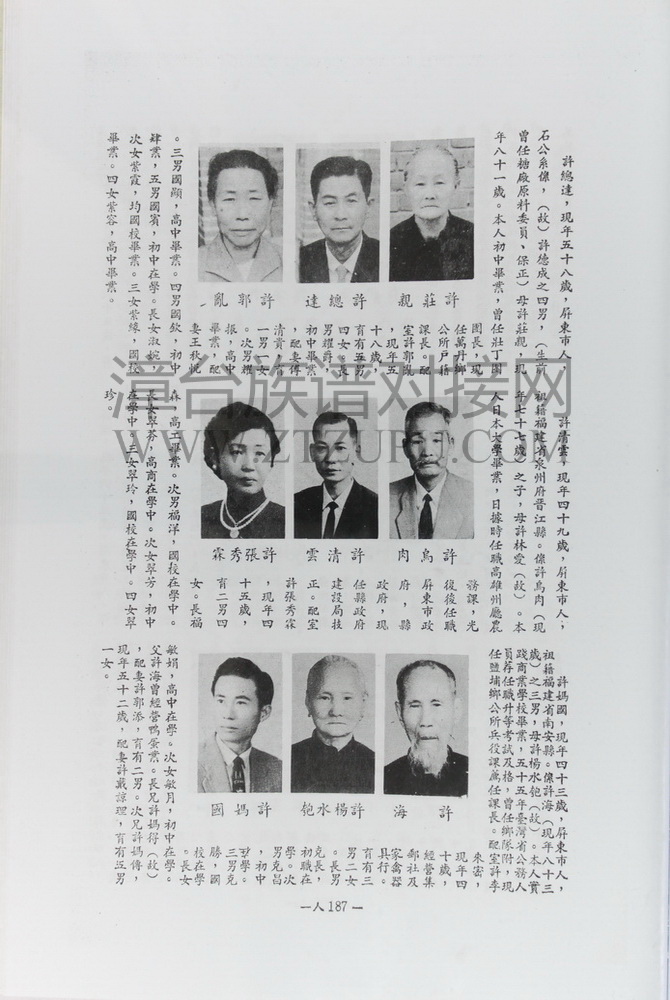 許總達,現年五十八歲,屏東市人,
石公系傳,(故)許德成之四男,(生前
曾任糖廠原料委員、保正)母許莊親,現
年八十一歲。本人初中畢業,曾任壯丁團
團長,現
任萬丹鄉
公所戶籍
課長,配
室許郭亂
,現年五
十八歲,
育有五男
四女,長
男耀爵,
初中畢業
,配妻傅
清貴,育
一男一女
。次男耀
振,高中
畢業,配
妻王秋悅
。三男國顯,高中畢業。四男國欽,初中
肄業,五男國賓,初中在學。長女淑婉
次女紫霞,均國校畢業。三女紫緣,國校
畢業。四女紫容,高中畢業。
許莊親
許總達
許郭亂
許清雲,現年四十九歲,屏東市人,
祖籍福建省泉州府晋江縣。係許烏肉(現
年七十七歲)之子,母許林愛(故)。本
人日本大學畢業,日據時任職高雄州廳農
務課,光
復後任職
屏東市政
府,縣
政府,現
任縣政府
建設局技
正。配室
許張秀霖
,現年四
十五歲,
育二男四
女。長福
森,高工畢業。次男福洋,國校在學中。
長女翠芬,高商在學中。次女翠芳,初中
在學中。三女翠玲,國校在學中。四女翠
珍。
許烏肉
許清雲
許張秀霖
許媽國,現年四十三歲,屏東市人,
祖籍福建省南安縣。係許海(現年八十三
歲)之三男,母許楊水匏(故)。本人實
踐商業學校畢業,五十五年臺灣省公務人
員荐任職升等考試及格,曾任鄉隊附,現
任鹽埔鄉公所兵役課薦任課長。配室許李
來密,
現年四
十歲,
經營集
郵社及
家禽器
具行。
育有三
男二女
。長男
克長,
初職在
學。次
男克昌
,初中
在學。
三男克
勝,國
校在學
。長女
敏娟,高中在學。次女敏月,初中在學。
父許海曾經營鴨蛋業。長兄許媽得(故)
,配妻許郭添,育有二男。次兄許媽傳,
現年五十二歲,配妻許戴諒理,育有五男
一女。
許海
許楊水匏
許媽國
—人187—
漳台族谱对接网
WWW.ZTZUPU.COM